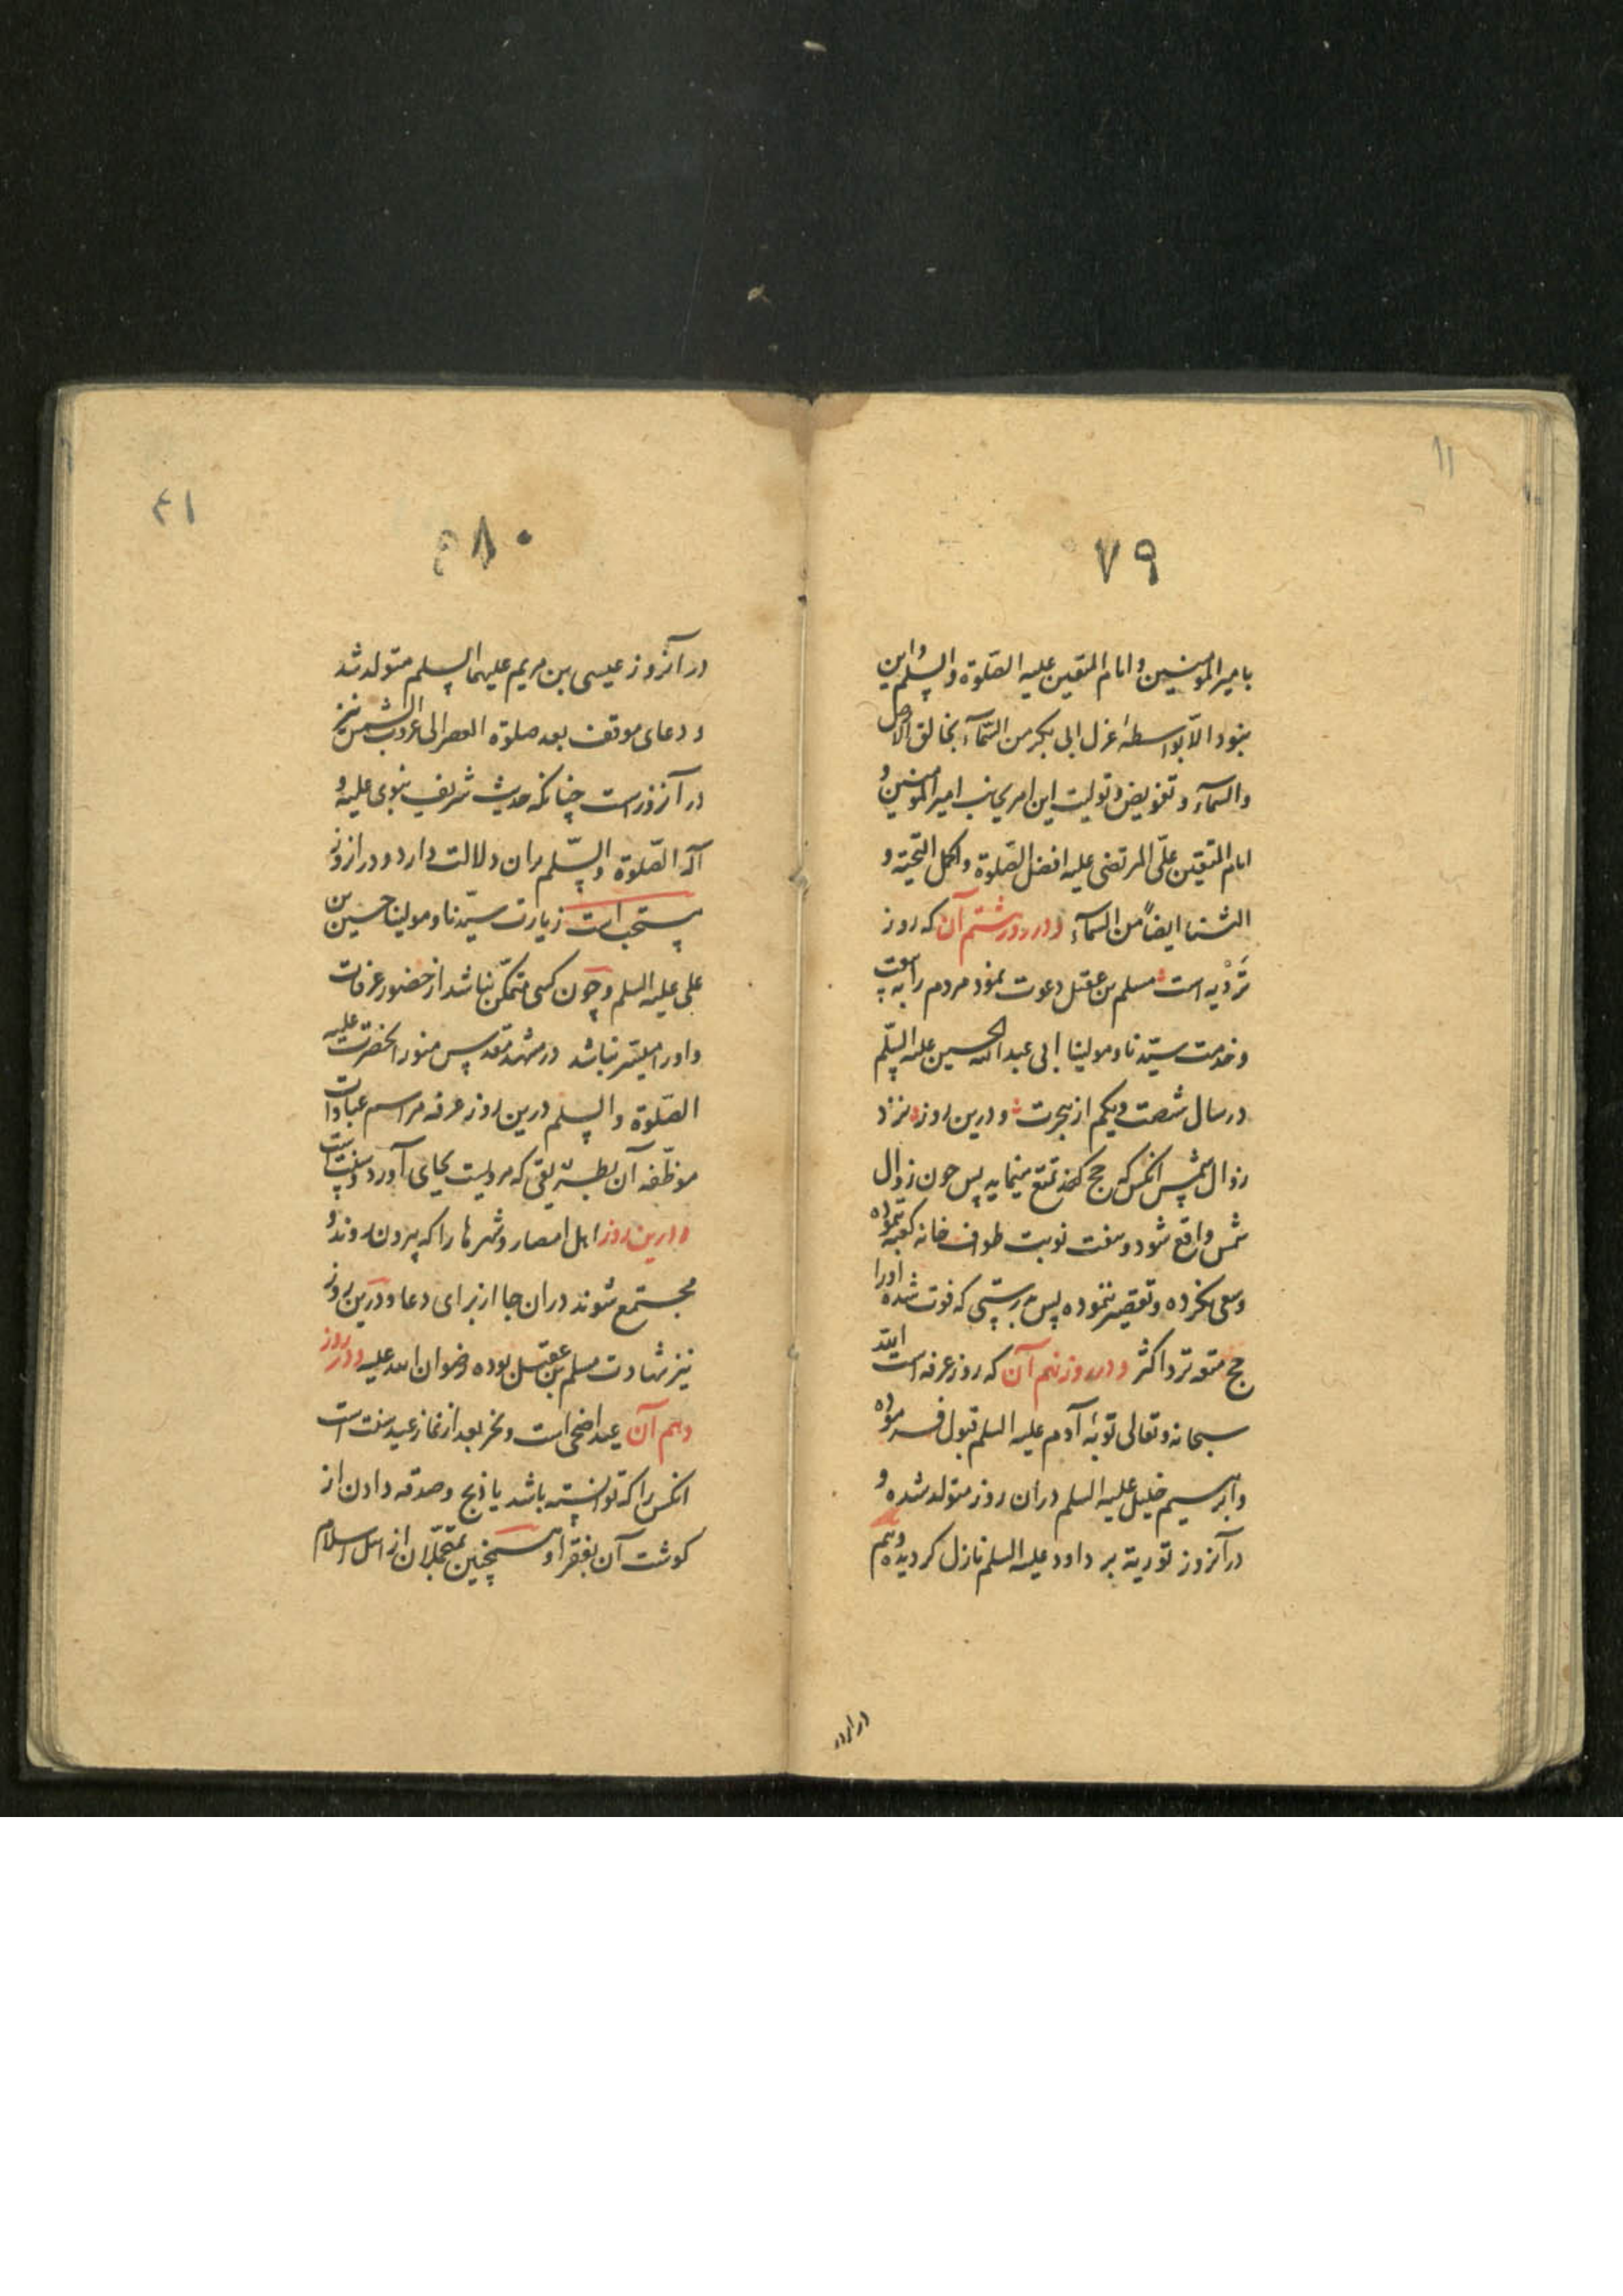 ۱۱
۷۹
بامیر المومنین و امام المتقین علیه الصلوة والسلم و این
نبود الا بواسطهٔ عزل ابی بکر من السمآء بخالق الارض
والسمآء و تفویض و تولیت این امر بجانب امیر المومنین و
امام المتقین علی المرتضی علیه افضل الصلوة و اکمل التحیته و
الثنا ایضاً من السمآء و در روز هشتم آن که روز
ترویه است مسلم بن عقیل دعوت نمود مردم را به بیعت
و خدمت سیدنا و مولینا ابی عبد الله الحسین علیه السلم
در سال شصت و یکم از هجرت و درین روز نزد
زوال شمس انکس که حج تمتع مینماید پس چون زوال
شمس واقع شود و هفت نوبت طواف خانه کعبه ننموده
و سعی نکرده و تقصیر ننموده پس بدرستی که فوت شده او را
حج متعه نزد اکثر و در روز نهم آن که روز عرفه است الله
سبحانه و تعالی توبهٔ آدم علیه السلم قبول فرموده
و ابرهیم خلیل علیه السلم دران روز متولد شده و
در آنروز توریة بر داود علیه السلم نازل کردیده و هم
در آنروز
۴۱
۸۰
در آنروز عیسی بن مریم علیهما السلم متولد شد
و دعای موقف بعد صلوة العصر الی غروب الشمس نیز
در آنروز است چنانکه حدیث شریف نبوی علیه و
آله الصلوة والسلم بران دلالت دارد و در انروز
مستحب است زیارت سیدنا و مولینا حسین بن
علی علیه السلم و چون کسی متمکن نباشد از حضور عرفات
و او را میسر نباشد در مشهد مقدس منور انحضرت علیه
الصلوة والسلم درین روز عرفه مراسم عبادات
موظفه آن بطریقی که مرویست بجای آورد و سنت است
و درین روز اهل امصار و شهرها را که بیرون روند و
مجتمع شوند دران جا از برای دعا و درین روز
نیز شهادت مسلم بن عقیل بوده رضوان الله علیه و در روز
دهم آن عید اضحی است و نحر بعد از نماز عید سنت است
انکس را که توانسته باشد یا ذبح و صدقه دادن از
کوشت آن بفقرا و همچنین بمتحملان از اهل اسلام